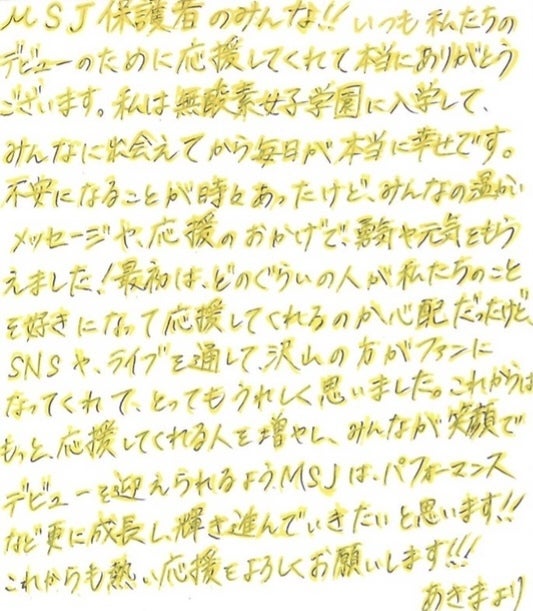 MSJ保護者のみんな!!いつも私たちの
デビューのために応援してくれて本当にありがとう
ございます。私は無酸素女子学園に入学して、
みんなに出会えてから毎日が本当に幸せです。
不安になることが時々あったけど、みんなの温かい
メッセージや、応援のおかげで、勇気や元気をもら
えました!最初は、どのぐらいの人が私たちのこと
を好きになって応援してくれるのか心配だったけど、
SNSや、ライブを通して、沢山の方がファンに
なってくれて、とってもうれしく思いました。これからは
もっと、応援してくれる人を増やし、みんなが笑顔で
デビューを迎えられるよう、MSJは、パフォーマンス
など更に成長し、輝き進んでいきたいと思います!!
これからも熱い応援をよろしくお願いします!!!
あきまより